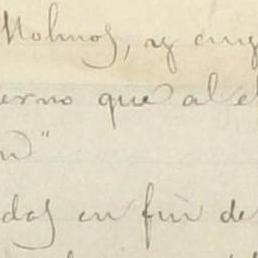 Molinos, y cuy
erno que al e
n"
das en fin de